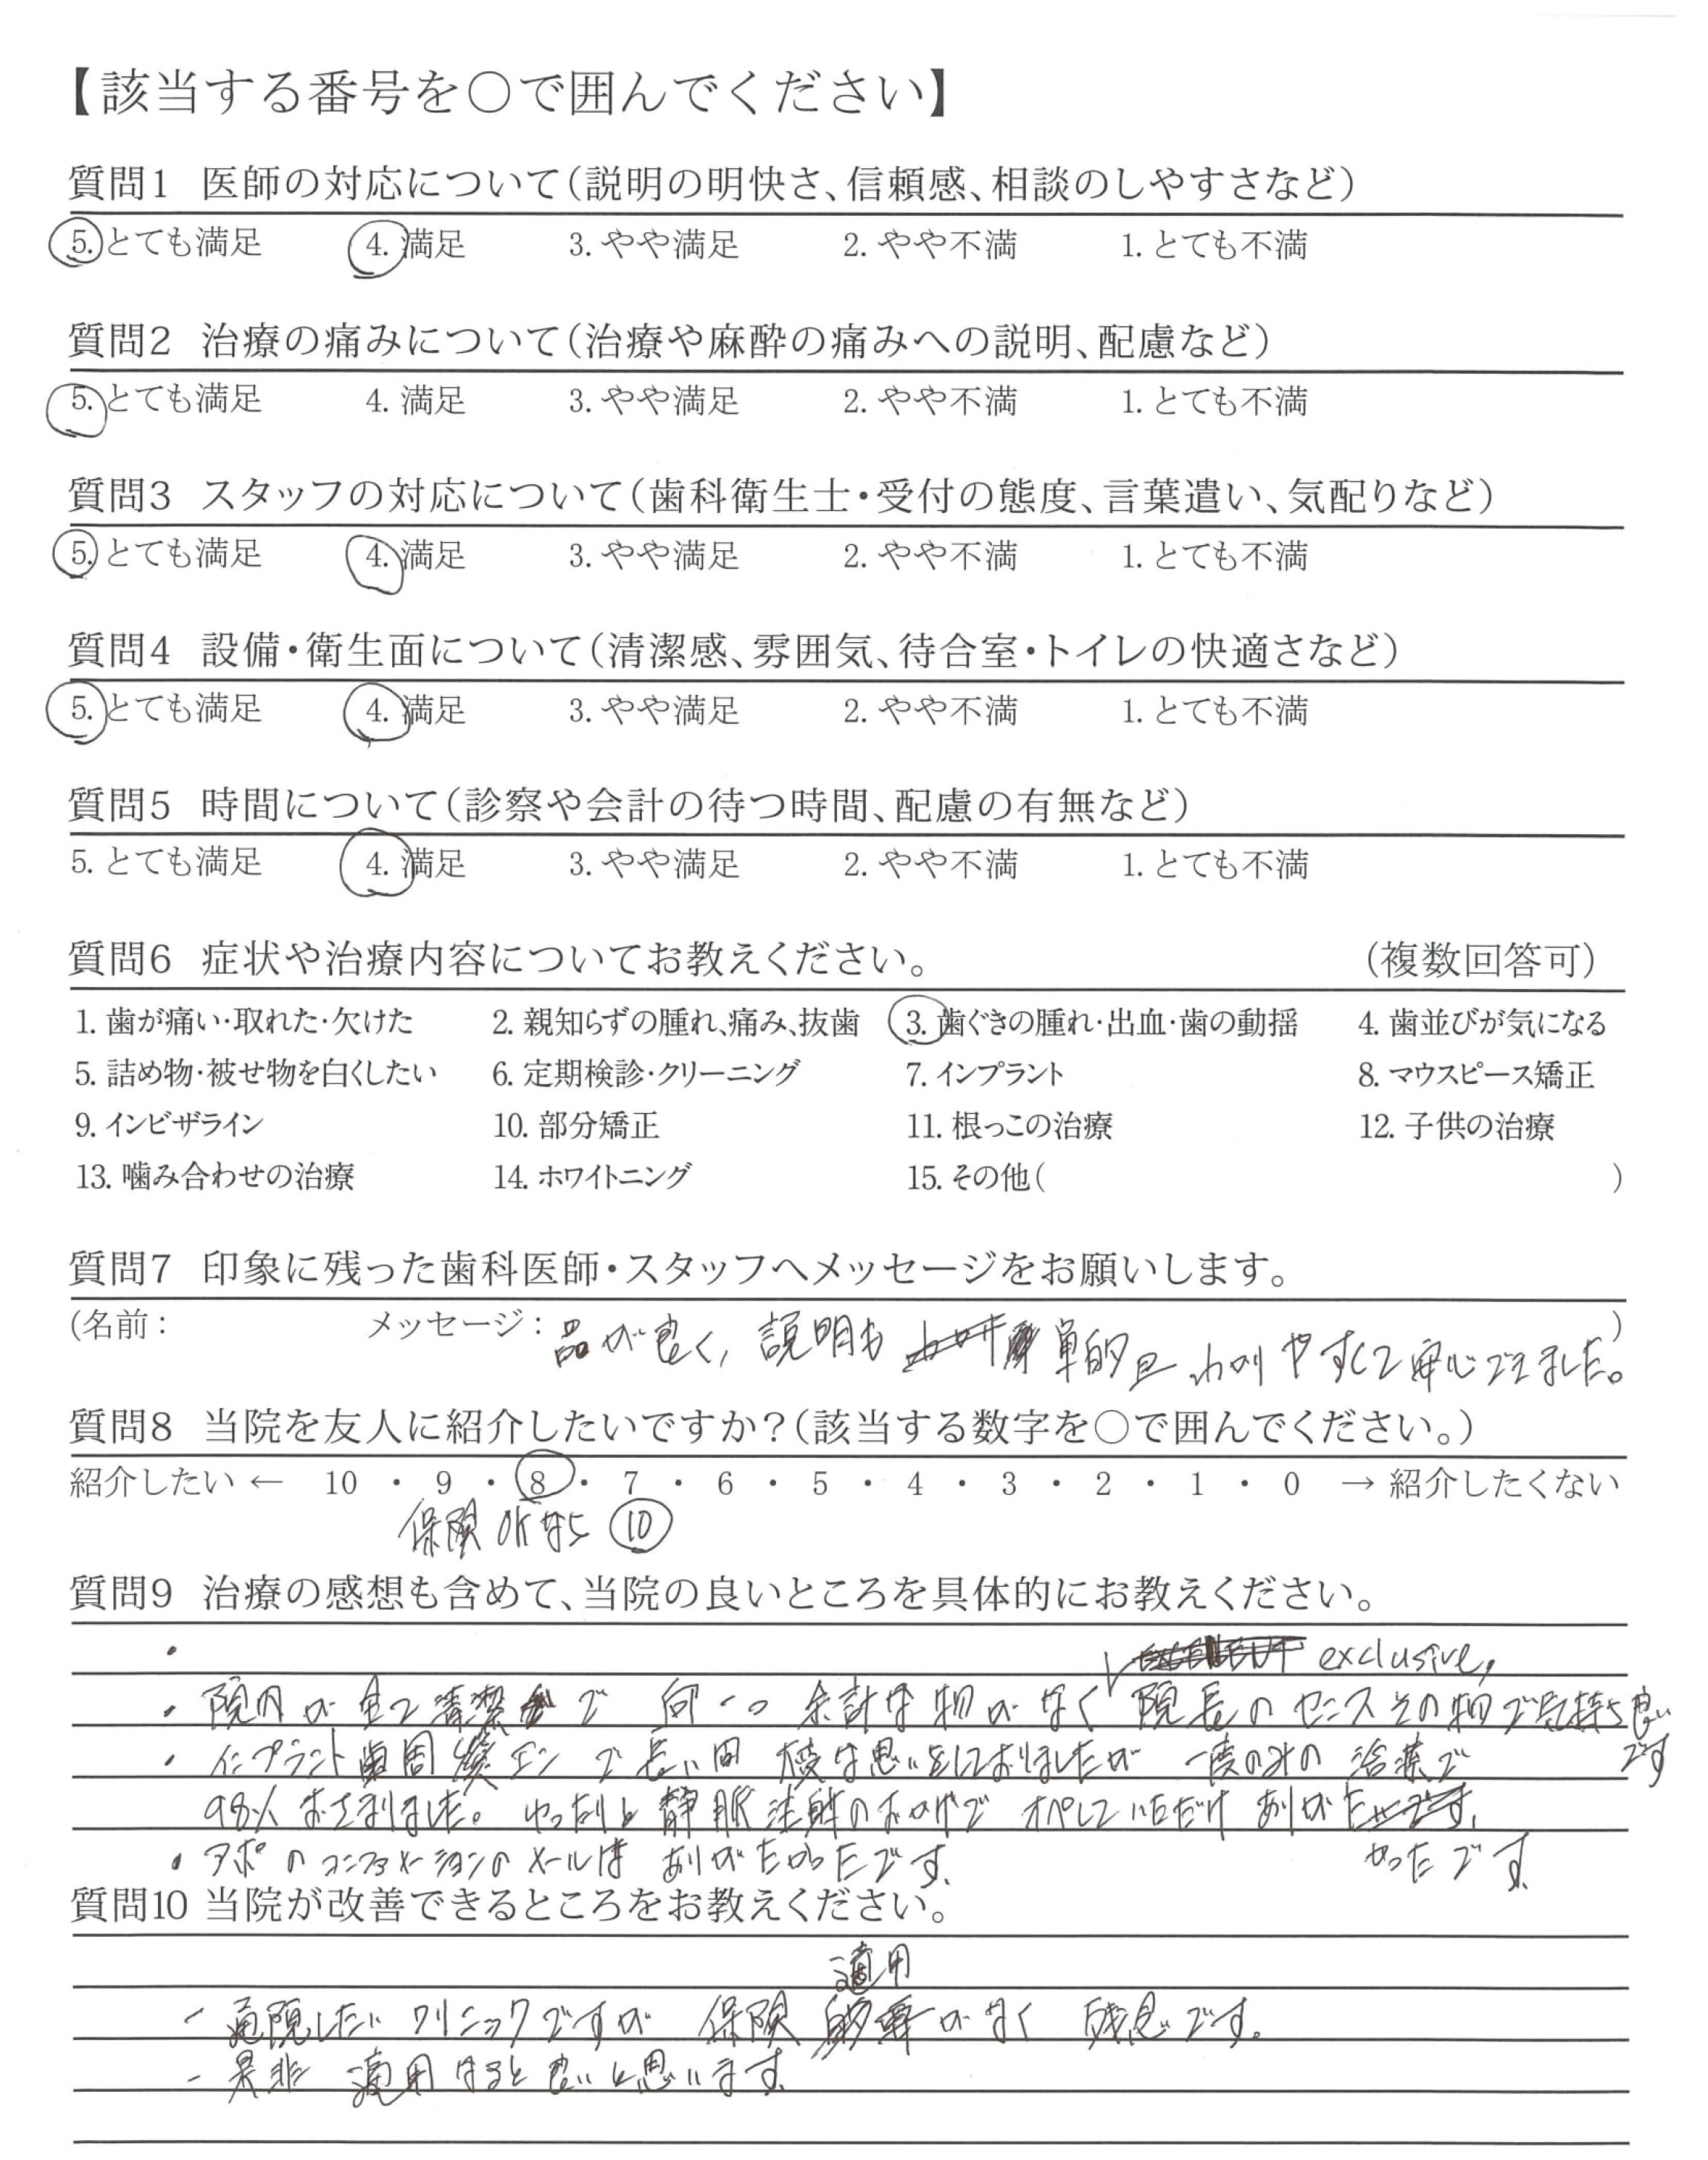 【該当する番号を○で囲んでください】
質問1 医師の対応について(説明の明快さ、信頼感、相談のしやすさなど)
5. とても満足 4. 満足 3. やや満足 2. やや不満 1. とても不満
質問2 治療の痛みについて(治療や麻酔の痛みへの説明、配慮など)
5. とても満足 4. 満足 3. やや満足 2. やや不満 1. とても不満
質問3 スタッフの対応について(歯科衛生士・受付の態度、言葉遣い、気配りなど)
5. とても満足 4. 満足 3. やや満足 2. やや不満 1. とても不満
質問4 設備・衛生面について(清潔感、雰囲気、待合室・トイレの快適さなど)
5. とても満足 4. 満足 3. やや満足 2. やや不満 1. とても不満
質問5 時間について(診察や会計の待つ時間、配慮の有無など)
5. とても満足 4. 満足 3. やや満足 2. やや不満 1. とても不満
質問6 症状や治療内容についてお教えください。 (複数回答可)
1. 歯が痛い・取れた・欠けた 2. 親知らずの腫れ、痛み、抜歯 3. 歯ぐきの腫れ・出血・歯の動揺 4. 歯並びが気になる
5. 詰め物・被せ物を白くしたい 6. 定期検診・クリーニング 7. インプラント 8. マウスピース矯正
9. インビザライン 10. 部分矯正 11. 根っこの治療 12. 子供の治療
13. 噛み合わせの治療 14. ホワイトニング 15. その他( )
質問7 印象に残った歯科医師・スタッフへメッセージをお願いします。
(名前: メッセージ: )
品が良く、説明も 単的 わかりやすくて安心できました。
質問8 当院を友人に紹介したいですか?(該当する数字を○で囲んでください。)
紹介したい ← 10 ・ 9 ・ 8 ・ 7 ・ 6 ・ 5 ・ 4 ・ 3 ・ 2 ・ 1 ・ 0 → 紹介したくない
保険OKなら 10
質問9 治療の感想も含めて、当院の良いところを具体的にお教えください。
exclusive,
・院内が全て清潔で 何一つ余計な物がなく 院長のセンスその物で気持ち良い
です
・インプラント歯周エンで長い間 な思いをしておりましたが 一度のみの治療で
98% おさまりました。ゆったりと静脈注射のおかげで オペしていただけ ありがた
かったです。
・アポのコンファメーションのメールは ありがたかったです。
質問10 当院が改善できるところをお教えください。
適用
- 通院したいクリニックですが 保険 がなく 残念です。
- 是非 適用 なると良いと思います。